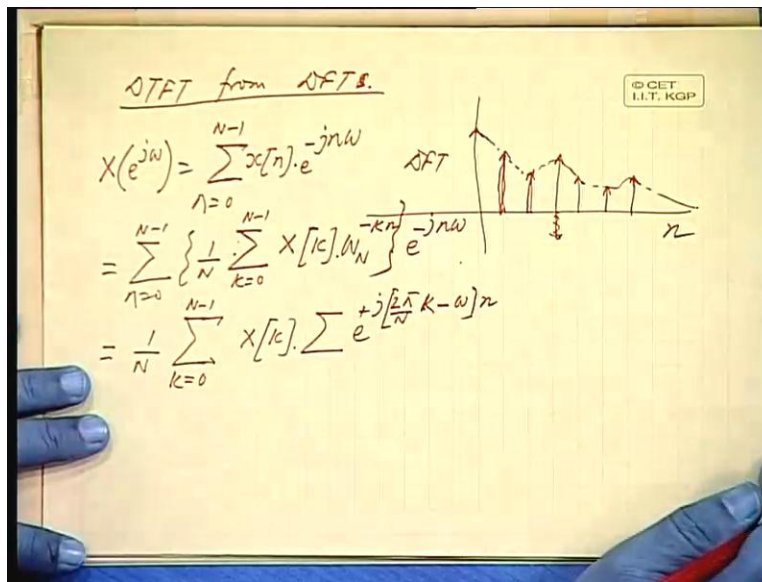 DTFT from DFTs.
© CET
I.I.T. KGP
X(e^{jω}) = \sum_{n=0}^{N-1} x[n].e^{-jnω}
DFT
= \sum_{n=0}^{N-1} { \frac{1}{N} . \sum_{k=0}^{N-1} X[k].W_N^{-kn} } e^{-jnω}
n
= \frac{1}{N} \sum_{k=0}^{N-1} X[k]. \sum e^{+j[\frac{2π}{N}k-ω]n}